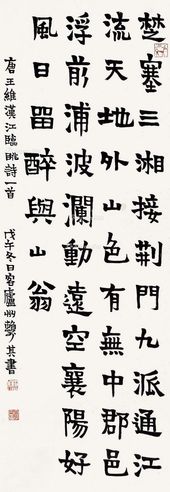 楚塞三湘接荊門九派通江
流天地外山色有無中郡邑
浮前浦波瀾動遠空襄陽好
風日留醉與山翁
唐王維漢江臨眺詩一首
戊午冬日客廬州其書